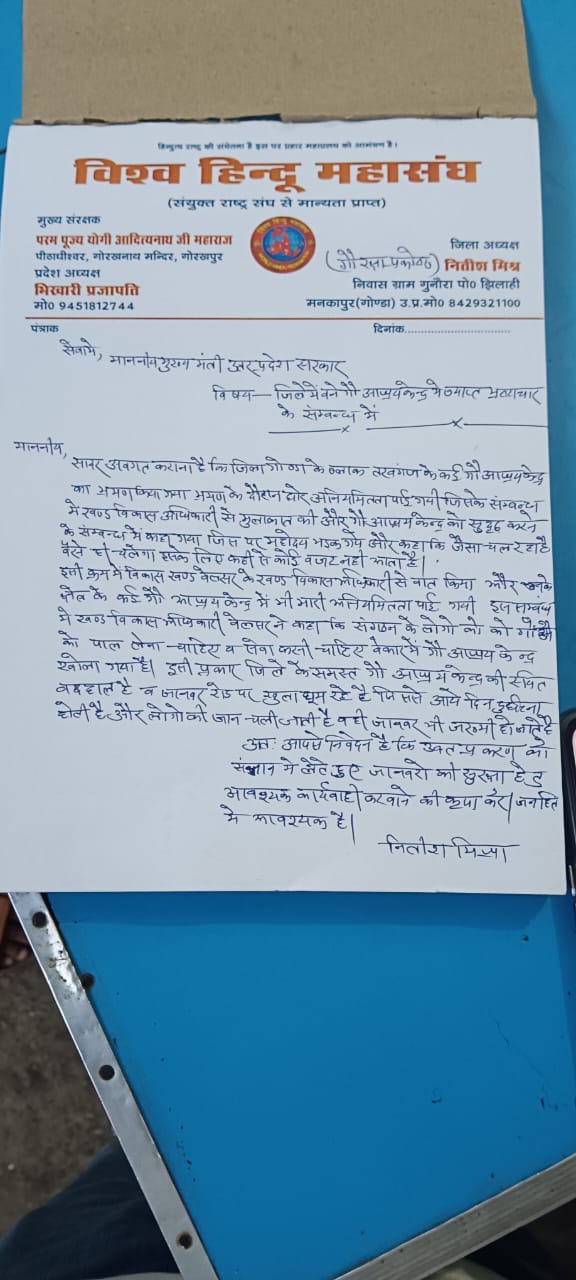 हिन्दुत्व राष्ट्र की संचेतना है इस पर प्रहार महाप्रलय को आमंत्रण है।
विश्व हिन्दू महासंघ
(संयुक्त राष्ट्र संघ से मान्यता प्राप्त)
मुख्य संरक्षक
परम पूज्य योगी आदित्यनाथ जी महाराज
पीठाधीश्वर, गोरखनाथ मन्दिर, गोरखपुर
प्रदेश अध्यक्ष
भिखारी प्रजापति
मो० 9451812744
जिला अध्यक्ष
(गौ रक्षा प्रकोष्ठ) नितीश मिश्र
निवास ग्राम गुनौरा पो० झिलाही
मनकापुर(गोण्डा) उ.प्र.मो० 8429321100
पंत्राक
दिनांक..............................
सेवामे, माननीय मुख्य मंत्री उत्तर प्रदेश सरकार
विषय — जिले में बने गौ आश्रय केन्द्र मे व्याप्त भ्रष्टाचार
के सम्बन्ध में
माननीय,
सादर अवगत कराना है कि जिला गोण्डा के ब्लाक तरबगंज के कई गौ आश्रय केन्द्र
का भ्रमण किया गया भ्रमण के दौरान घोर अनियमितता पाई गयी जिसके सम्बन्ध
मे खण्ड विकास अधिकारी से मुलाकात की और गौ आश्रय केन्द्र को सुदृढ करने
के सम्बन्ध में कहा गया जिस पर महोदय भडक गये और कहा कि जैसा चल रहा है
वैसे ही चलेगा इसके लिए कही से कोई वजट नही आता है।
इसी क्रम मे विकास खण्ड वेलसर के खण्ड विकास अधिकारी से वात किया और उनके
क्षेत्र के कई गौ आश्रय केन्द्र में भी भारी अनियमितता पाई गयी इस सम्बंध
मे खण्ड विकास अधिकारी वेलसर ने कहा कि संगठन के लोगो को गौ
को पाल लेना चाहिए व सेवा करनी चाहिए वेकार में गौ आश्रय केन्द्र
खोला गया है। इसी प्रकार जिले के समस्त गौ आश्रय केन्द्र की स्थित
वदहाल है व जानवर रोड पर खुला घूम रहे है जिससे आये दिन दुर्घटना
होती है और लोगो की जान चली जाती है वही जानवर भी जख्मी हो जाते है
अतः आपसे निवेदन है कि उक्त प्रकरण को
संज्ञान मे लेते हुए जानवरो की सुरक्षा हेतु
आवश्यक कार्यवाही करवाने की कृपा करें। जनहित
मे आवश्यक है।
नितीश मिश्रा